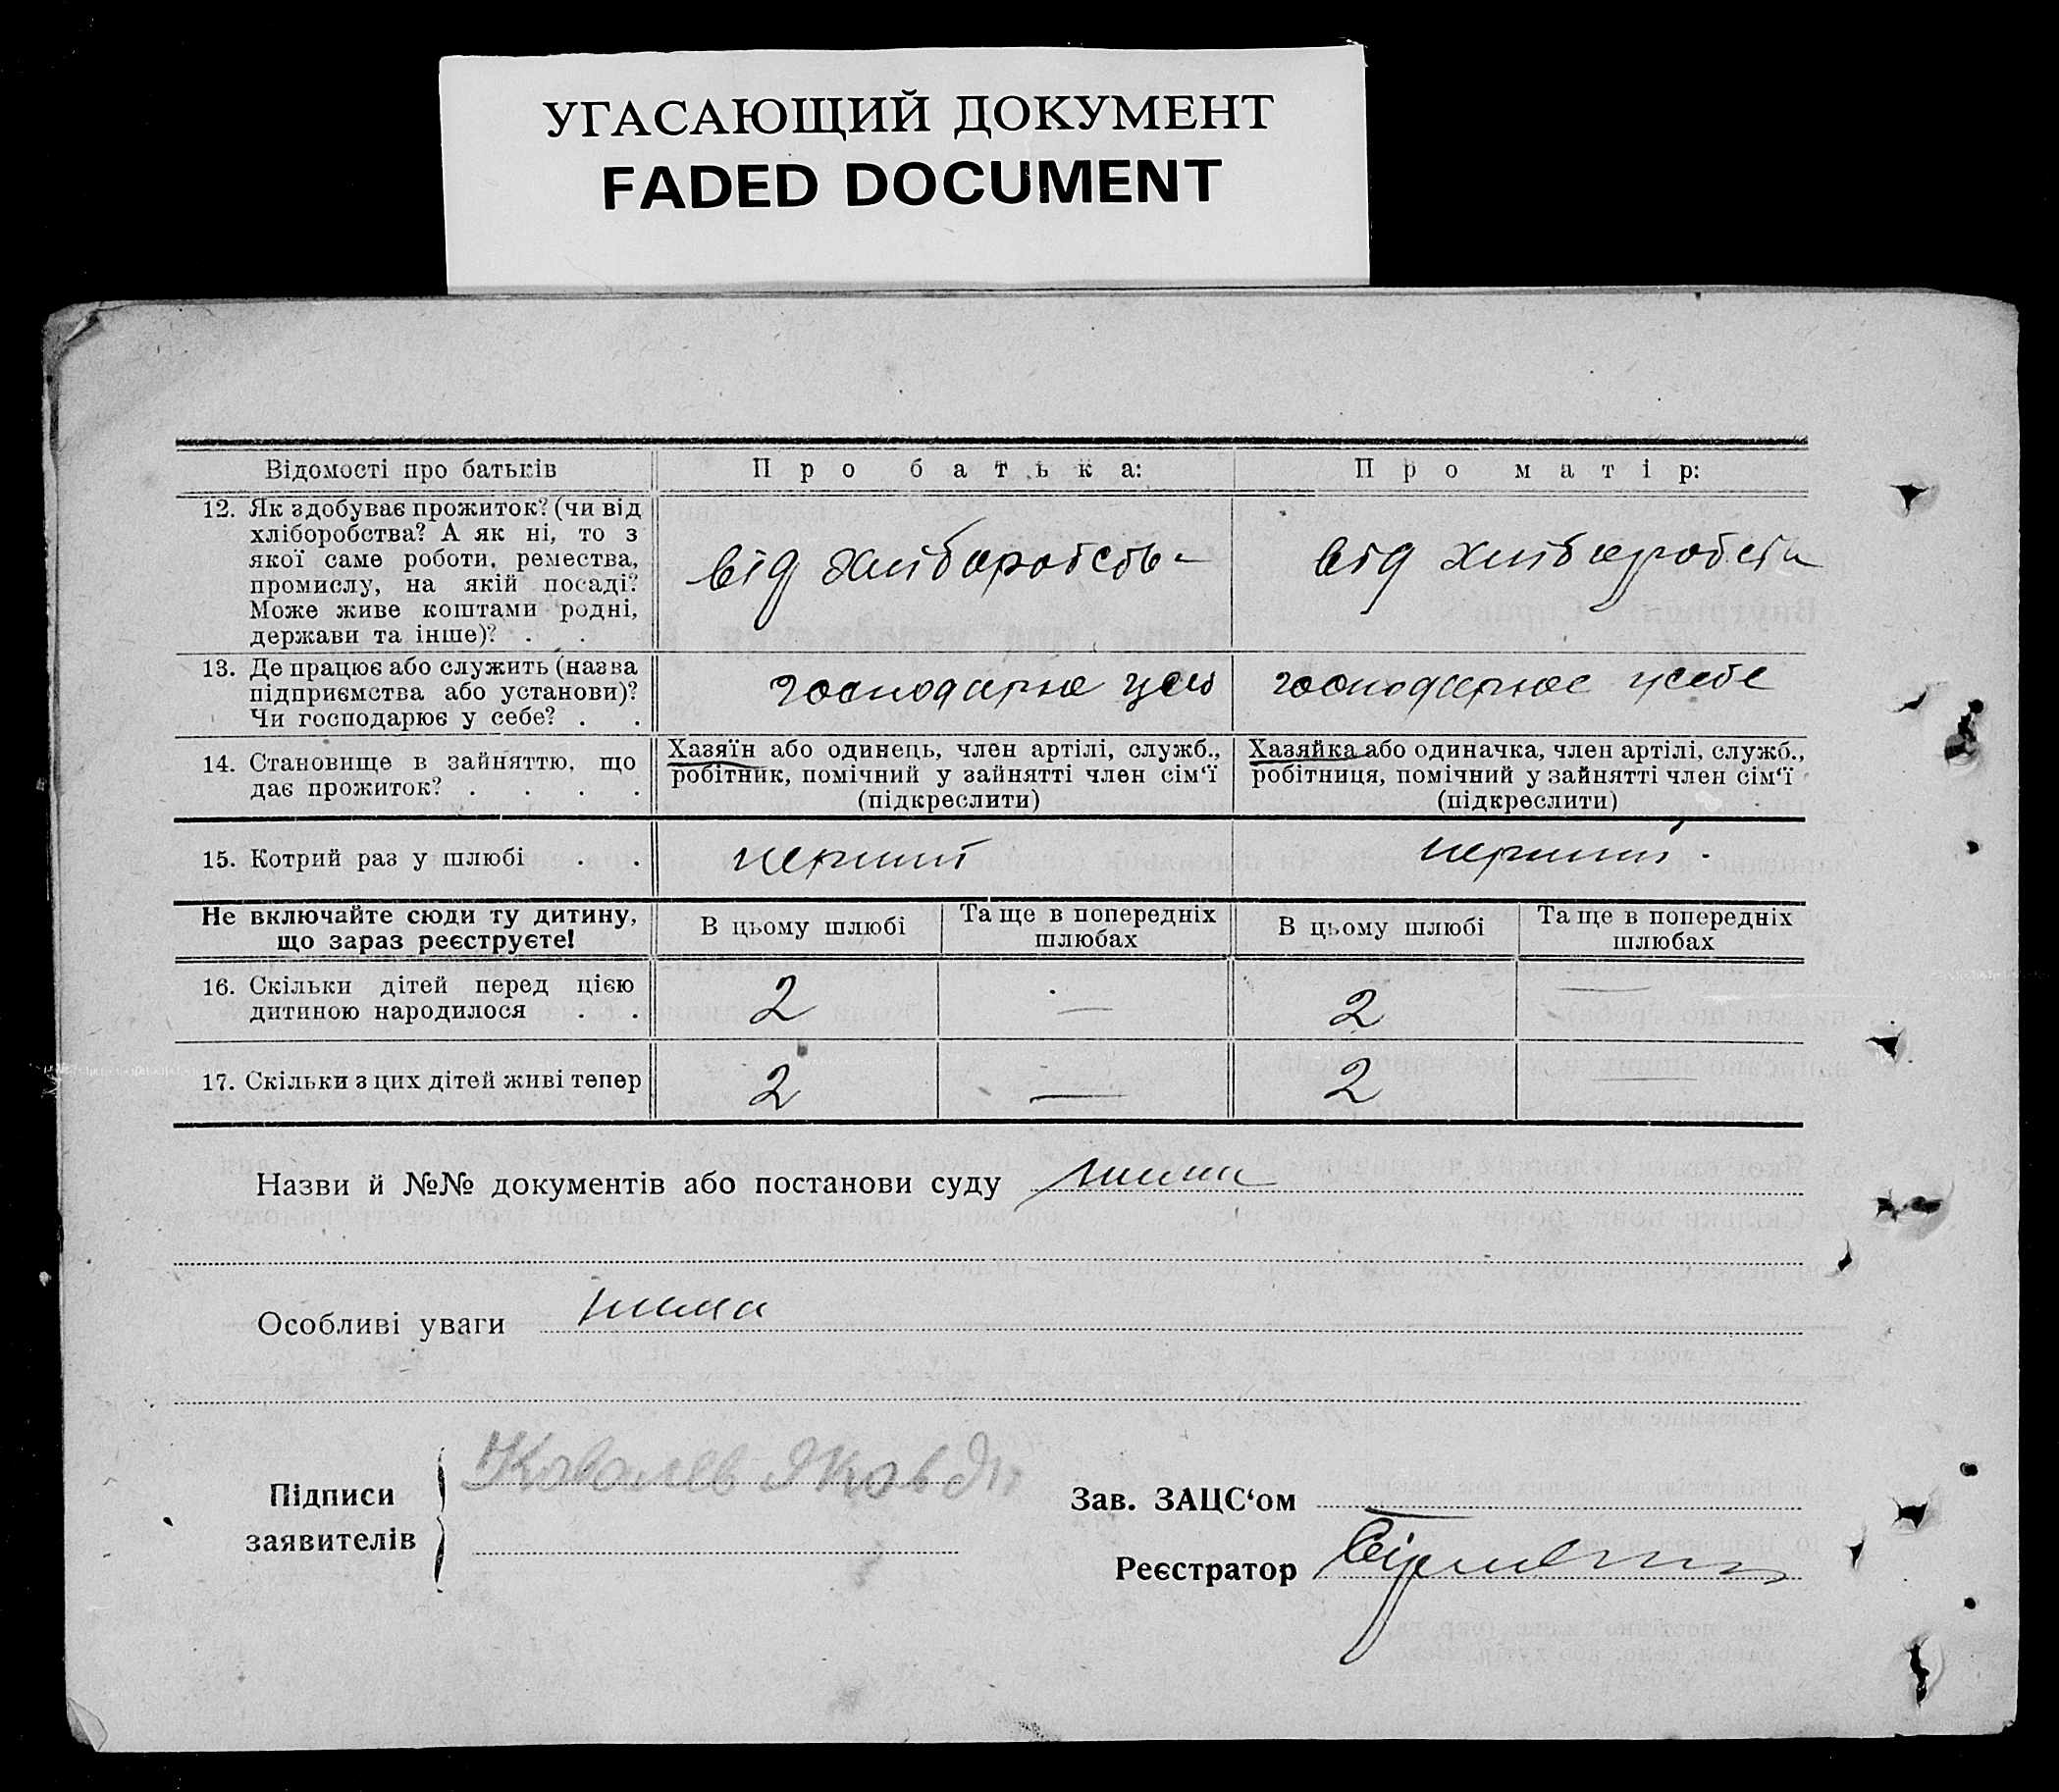 УГАСАЮЩИЙ ДОКУМЕНТ
FADED DOCUMENT
Відомості про батьків
Про батька:
Про матір:
12. Як здобуває прожиток? (чи від
хліборобства? А як ні, то з
якої саме роботи, ремества,
промислу, на якій посаді?
Може живе коштами родні,
держави та інше)? . .
від
від
13. Де працює або служить (назва
підприємства або установи)?
Чи господарює у себе? . .
господарює
господарює усебе
14. Становище в зайняттю, що
дає прожиток? . . . .
Хазяїн або одинець, член артілі, служб.,
робітник, помічний у зайнятті член сім‘ї
(підкреслити)
Хазяйка або одиначка, член артілі, служб.,
робітниця, помічний у зайнятті член сім‘ї
(підкреслити)
15. Котрий раз у шлюбі . .
перший
перший.
Не включайте сюди ту дитину,
що зараз реєструєте!
В цьому шлюбі
Та ще в попередніх
шлюбах
В цьому шлюбі
Та ще в попередніх
шлюбах
16. Скільки дітей перед цією
дитиною народилося . .
2
—
2
—
17. Скільки з цих дітей живі тепер
2
—
2
—
Назви й №№ документів або постанови суду нима
Особливі уваги нима
Підписи
заявителів
Зав. ЗАЦС‘ом
Реєстратор